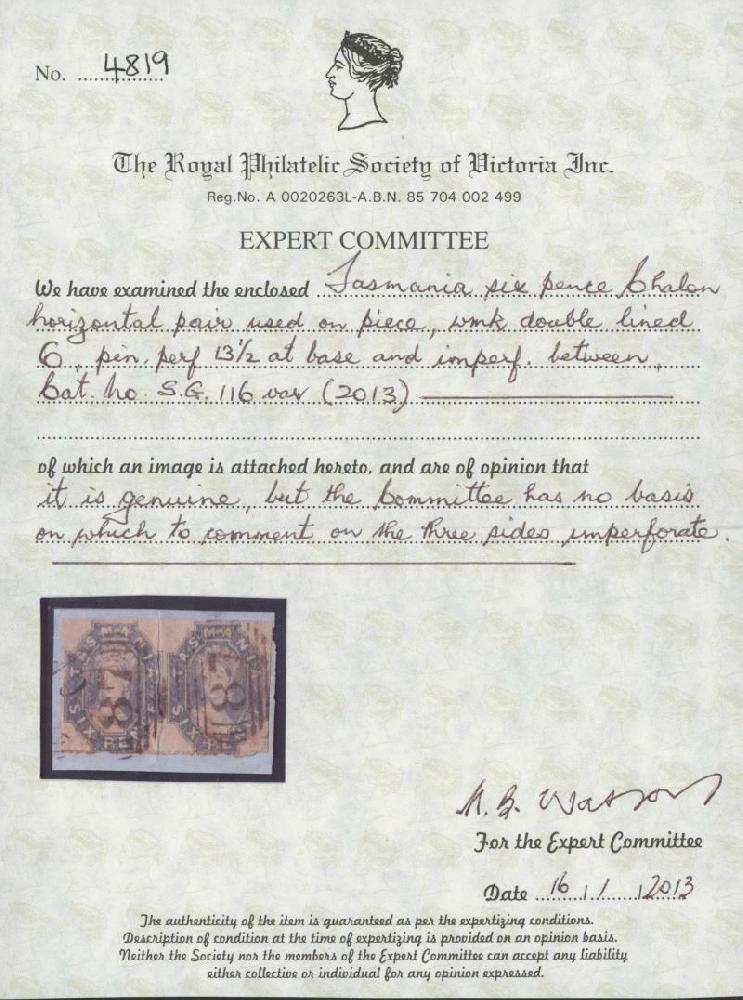 No. 4819
The Royal Philatelic Society of Victoria Inc.
Reg.No. A 0020263L-A.B.N. 85 704 002 499
EXPERT COMMITTEE
We have examined the enclosed Tasmania six pence Chalon
horizontal pair used on piece, wmk double lined
6, pin. perf 13½ at base and imperf. between,
Cat. No. S.G. 116 var (2013)
of which an image is attached hereto, and are of opinion that
it is genuine, but the Committee has no basis
on which to comment on the three sides imperforate.
TASMANIA TASMANIA
87 87
SIX PENCE SIX PENCE
M.B. Watson
For the Expert Committee
Date 16 / 1 / 2013
The authenticity of the item is guaranteed as per the expertizing conditions.
Description of condition at the time of expertizing is provided on an opinion basis.
Neither the Society nor the members of the Expert Committee can accept any liability
either collective or individual for any opinion expressed.